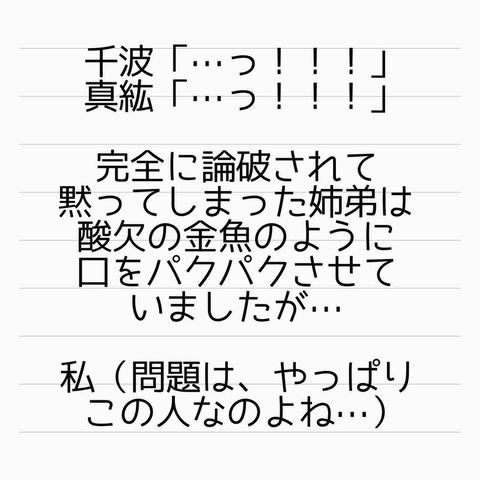 千波「…っ！！！」
真紘「…っ！！！」
完全に論破されて
黙ってしまった姉弟は
酸欠の金魚のように
口をパクパクさせて
いましたが…
私（問題は、やっぱり
この人なのよね…）